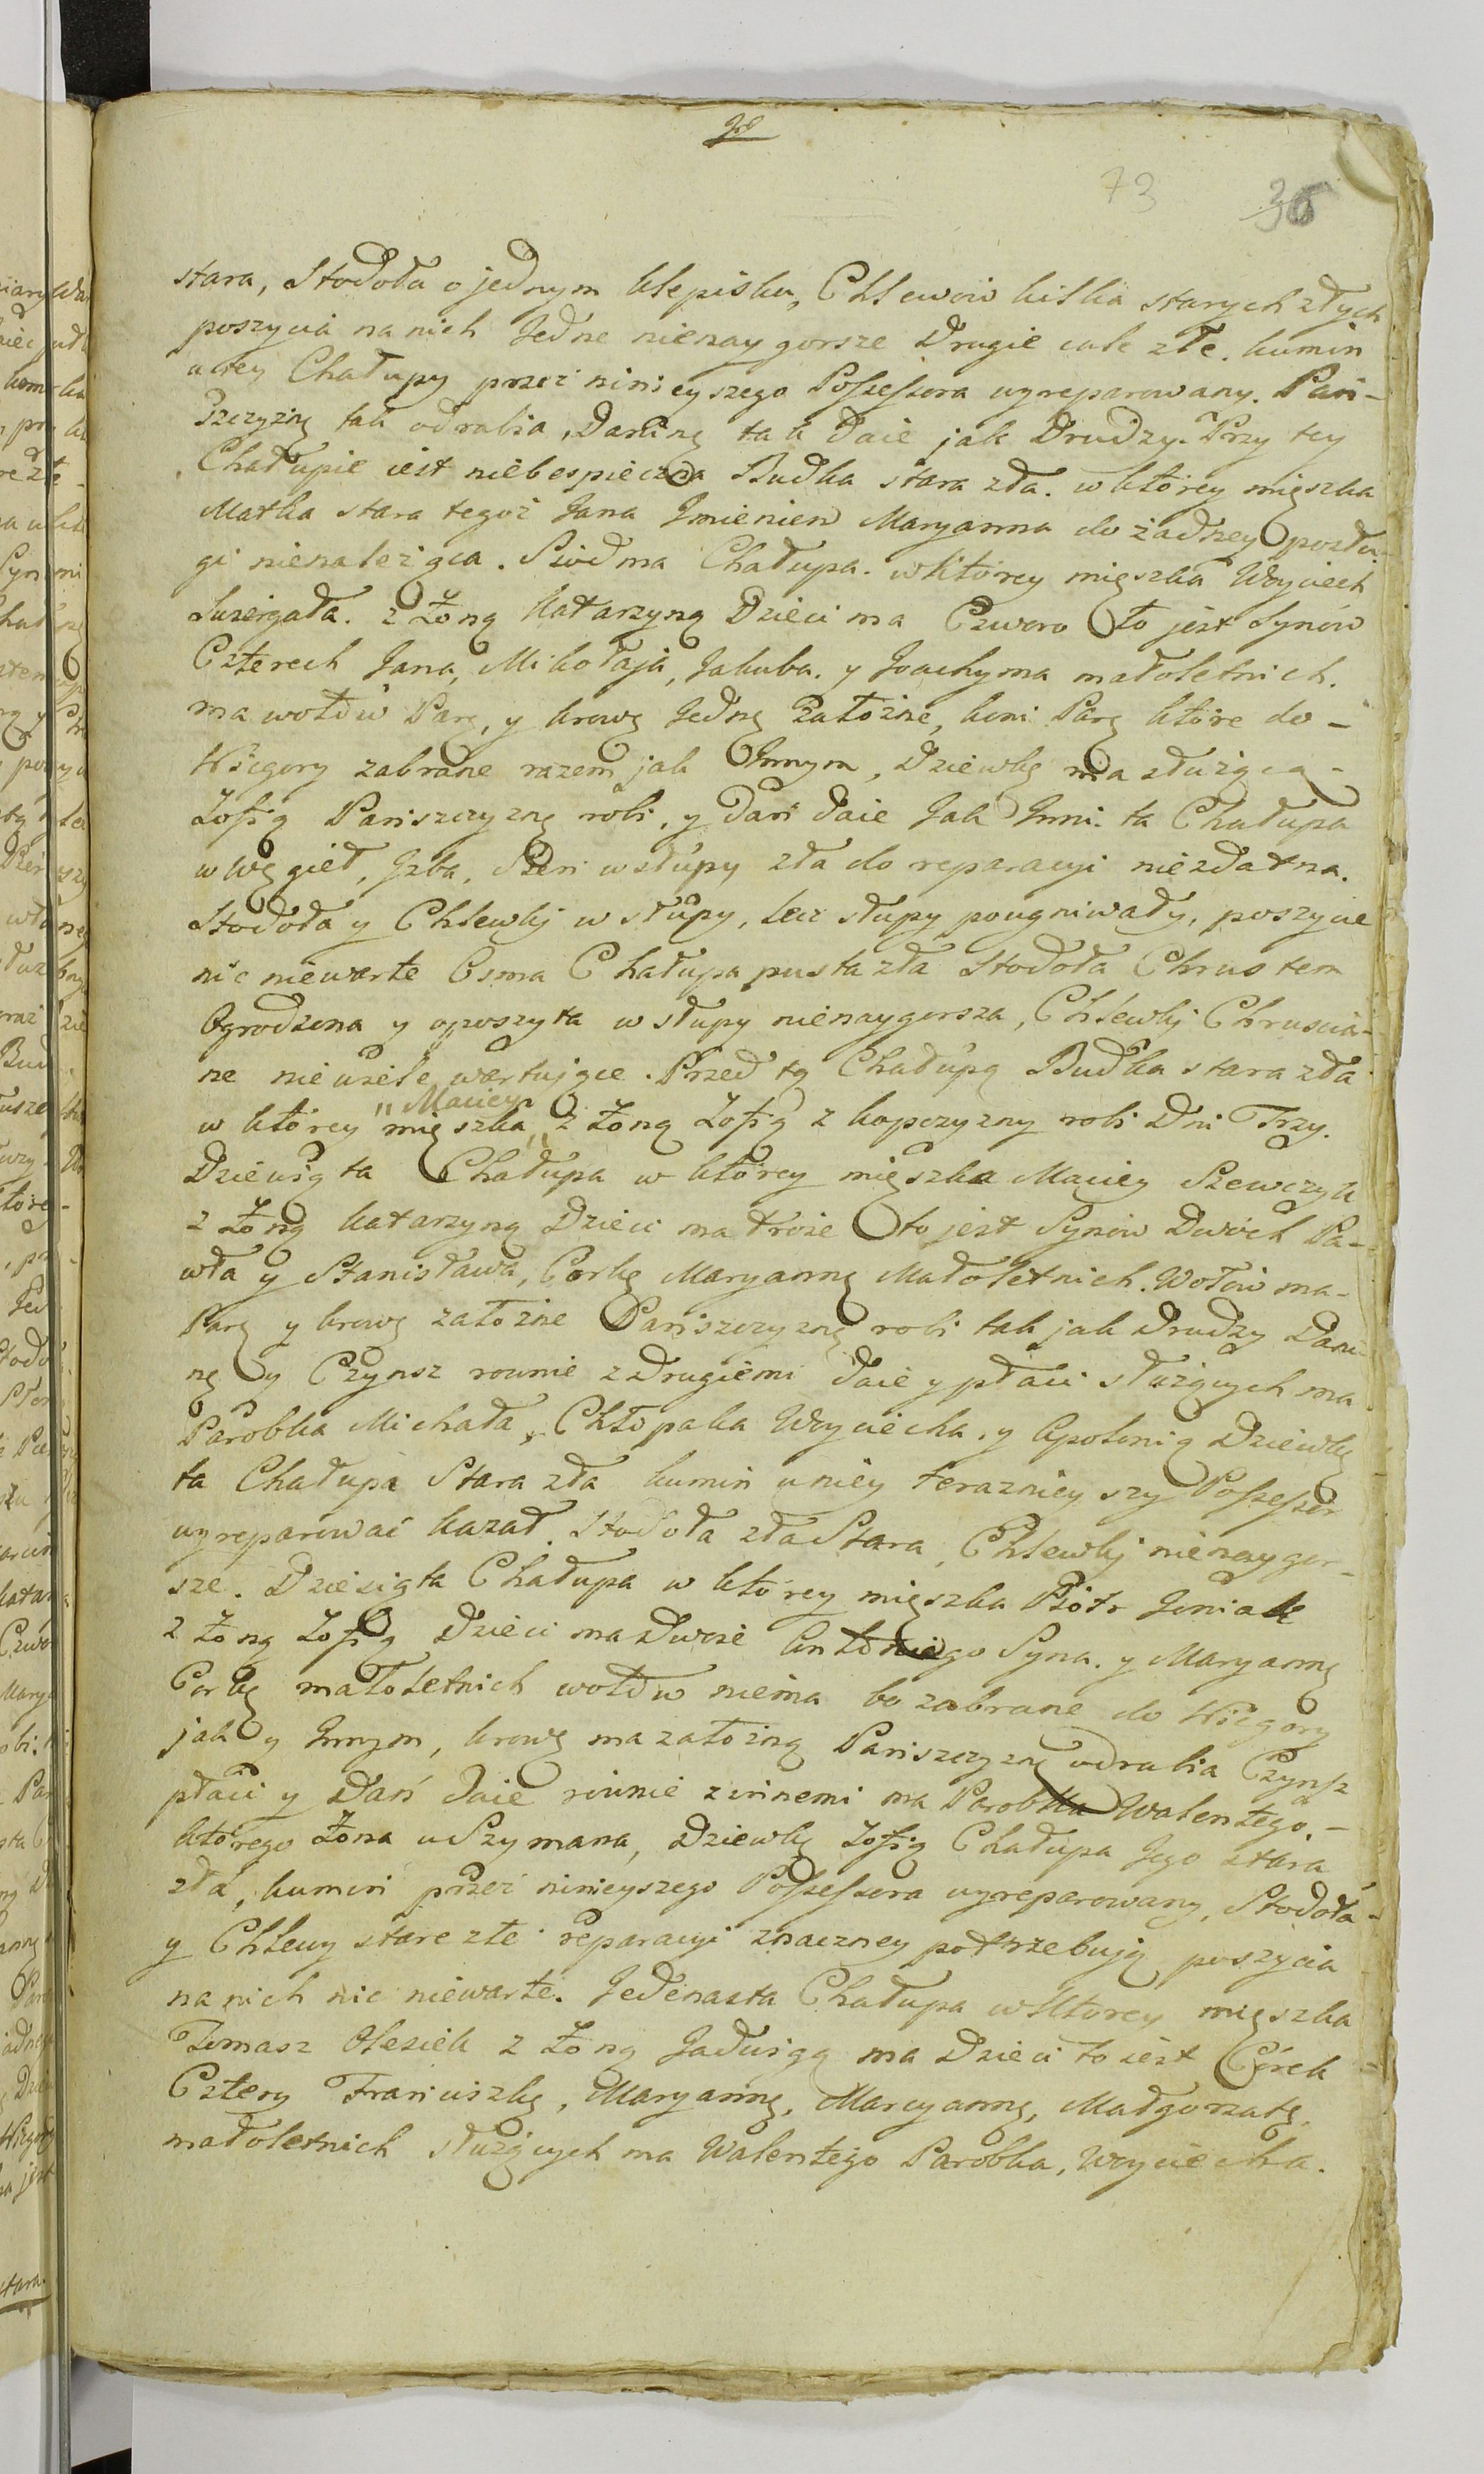 73 36
stara, Stodoła o jednym klepisku, Chlewów kilka starych złych
poszycia na nich Jedne nienaygorsze Drugie całe złe. kumin
u tey Chałupy przez ninieyszego Possessora wyreparowany. Pań-
szczyznę tak odrabia, Daninę tak daie jak Drudzy. Przy tey
Chałupie iest niebespieczna Budka stara zła. w którey mięszka
Matka stara tegoż Jana Imieniem Maryanna do żadney posłu-
gi nienależąca. Siódma Chałupa. w którey mięszka Woyciech
z Żoną Katarzyną Dzieci ma Czworo to jest Synów
Czterech Jana, Mikołaja, Jakuba. y Joachyma małoletnich.
ma wołów Parę, y krowę Jedną Załozne, koni Parę które do-
Węgory zabrane razem jak Innym, Dziewkę ma służącą-
Zofią Pańszczyznę robi, y Dań daie Jak Inni. ta Chałupa
w Węgieł, Izba, Sień w słupy zła do reparacyi niezdatna.
Stodoła y Chlewky w słupy, lecz słupy pougniwały, poszycie
nic niewarte Osma Chałupa pusta zła Stodoła Chrustem
Ogrodzona y oposzyta w słupy nienaygorsza, Chlewky Chruścia-
ne niewiele wartujące. Przed tą Chałupą Budka stara zła
w którey mięszka "Maciey" z Żoną Zofią z kopczyzny robi Dni Trzy.
Dziewiąta Chałupa w którey mięszka Maciey Szewczyk
z Żoną Katarzyną Dzieci ma troie to jest Synów Dwóch Pa-
wła y Stanisława, Corkę Maryannę Małoletnich. Wołów ma-
Parę y krowę załozne Pańszczyznę robi tak jak Drudzy Dani-
nę y Czynsz rownie z Drugiemi daie y płaci służących ma
Parobka Michała, Chłopaka Woyciecha. y Apolonią Dziewkę
ta Chałupa Stara zła kumin u niey teraznieyszy Possessor
wyreparować kazał. Stodoła zła Stara, Chlewky nienaygor-
sze. Dziesiąta Chałupa w którey mięszka Piotr Goniak
z Żoną Zofią Dzieci ma dwoie Antoniego Syna. y Maryannę
Corkę małoletnich wołów niema bo zabrane do Węgory
jak y Innym, krowę ma załozną Pańszczyznę odrabia Czynsz
płaci y Dań daie równie z innemi ma Parobka Walentego.-
którego Żona u Szymana, Dziewkę Zofią Chałupa Jego stara
zła, kumin przez ninieyszego Possessora wyreparowany, Stodoła-
y Chlewy stare złe reparacyi znaczney potrzebują poszycia
na nich nic niewarte. Jedenasta Chałupa w którey mięszka
Tomasz Olesiek z Żoną Jadwigą ma Dzieci to iest Córek
Cztery Franciszkę, Maryannę, Marcyannę, Małgorzatę.
małoletnich służących ma Walentego Parobka, Woyciecha.